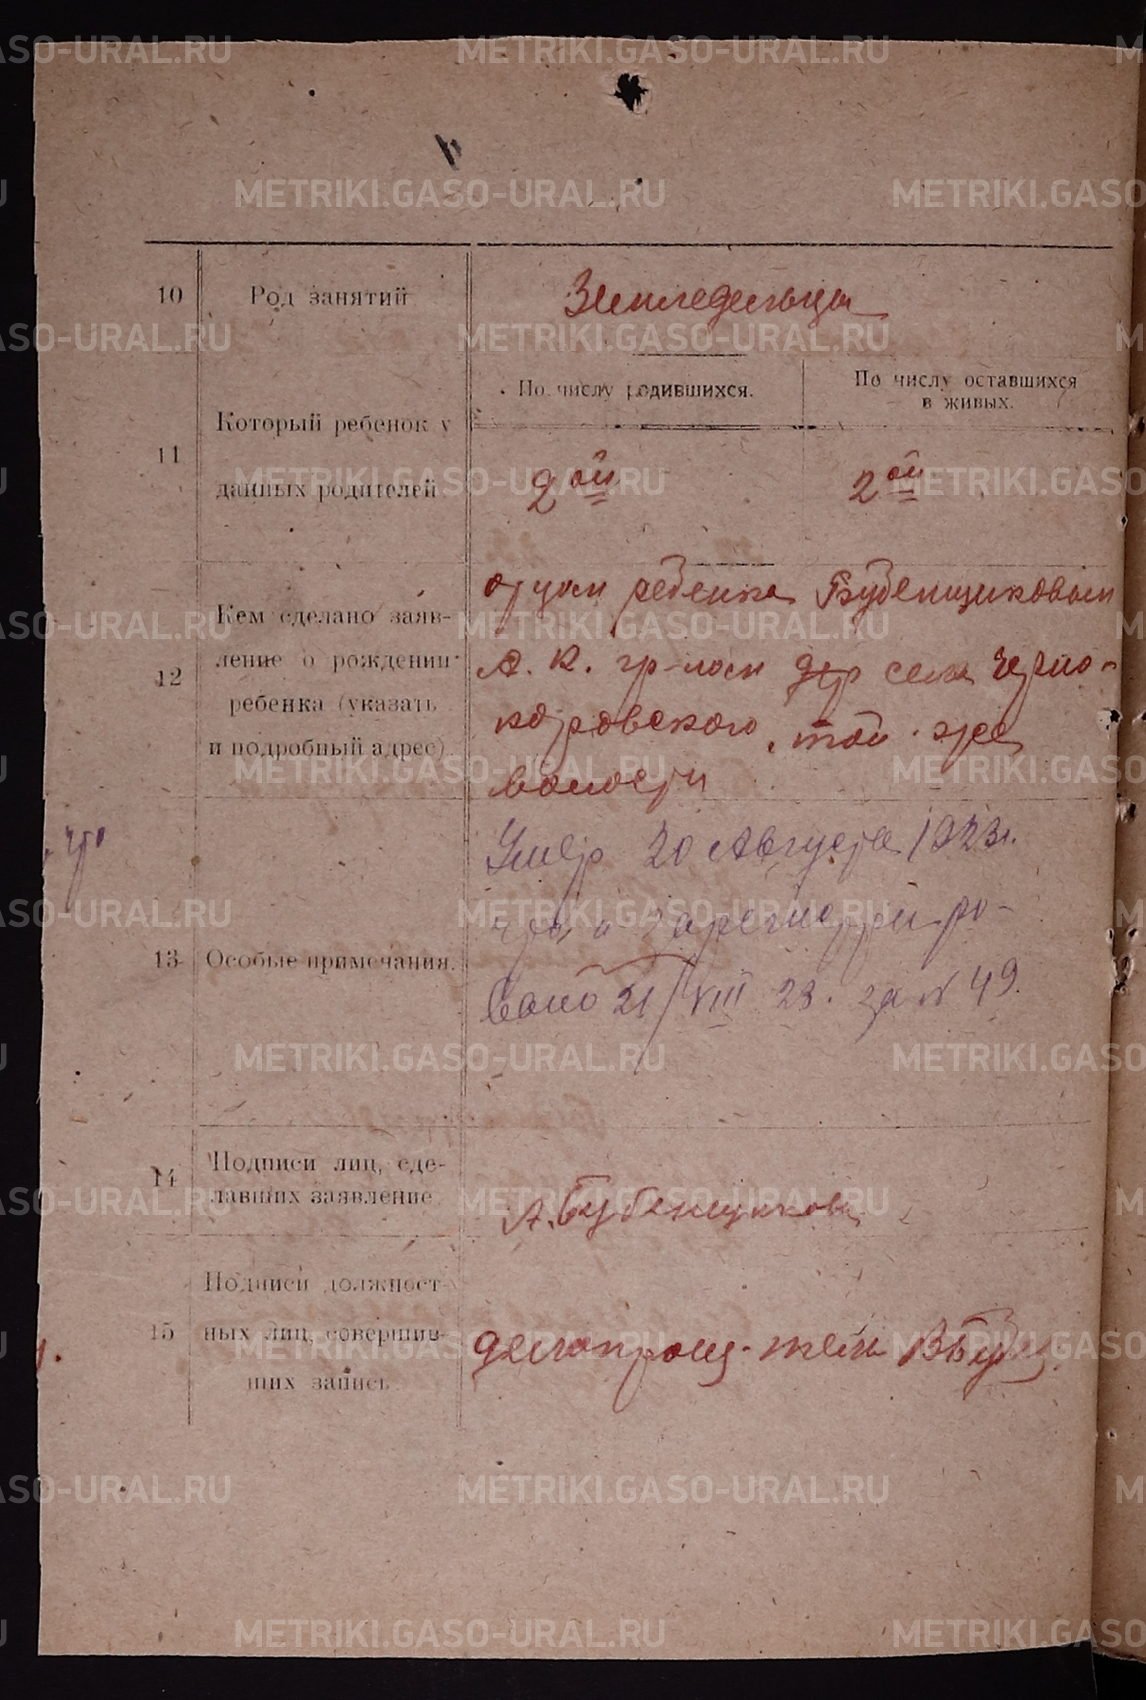 METRIKI.GASO-URAL.RU
10 Род занятий Земледельцы
11 Который ребенок у данных родителей
По числу родившихся.
По числу оставшихся
в живых.
2ой 2ой
12 Кем сделано заяв-
ление о рождении
ребенка (указать
и подробный адрес)
отцом ребенка Бубенщиковым
А. К. гр-ном дер села Черно-
коровского, той же
волости
13 Особые примечания.
Умер 20 Августа 1923г.
зарегистриро-
вано 21/VIII 23. за № 49.
14 Подписи лиц, сде-
лавших заявление
А. Бубенщиков
15 Подписи должност-
ных лиц, совершив-
ших запись
делопроизв-тель